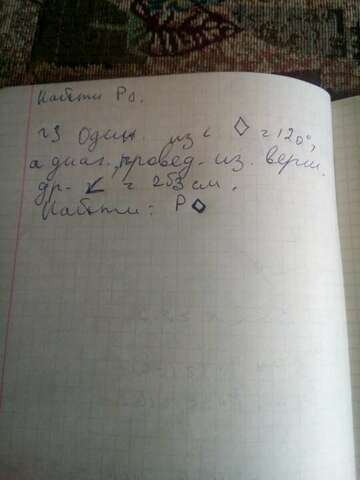 Найти P◊.
№3 Один. из ∠ ◊ = 120°,
а диаг., провед. из. верш.
др. ∠ = 253 см.
Найти: P◊